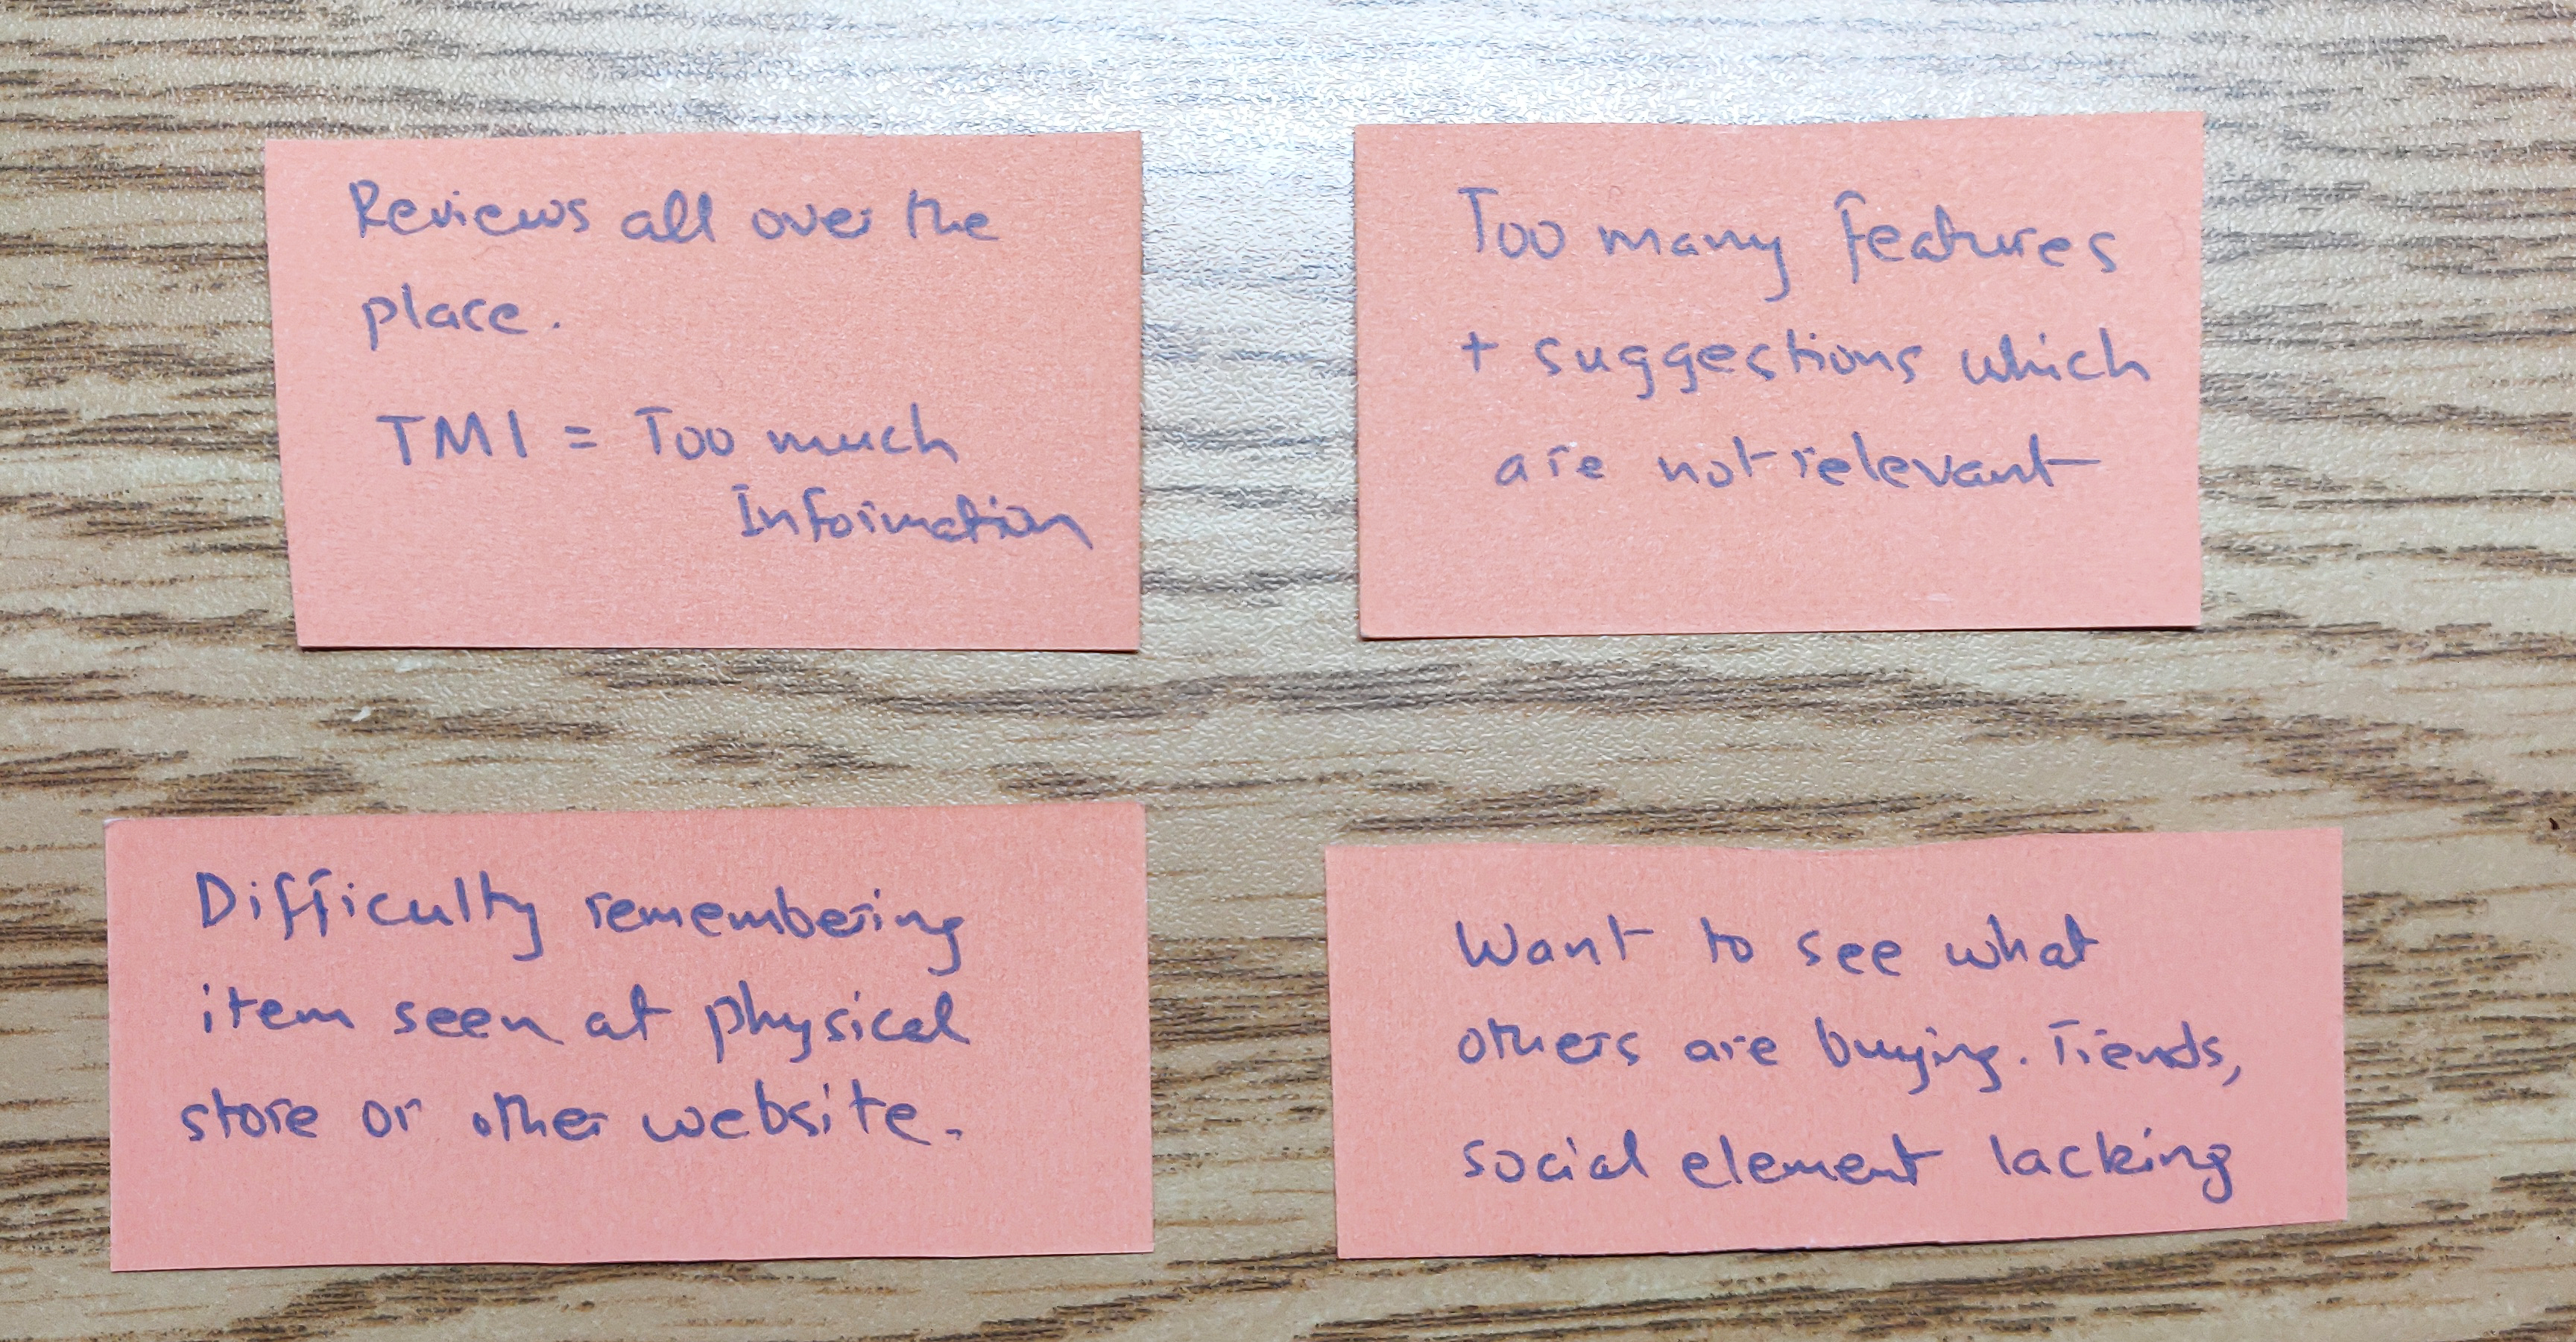 Reviews all over the
place.
TMI = Too much
Information
Too many features
+ suggestions which
are not relevant
Difficulty remembering
item seen at physical
store or other website.
Want to see what
others are buying. Trends,
social element lacking